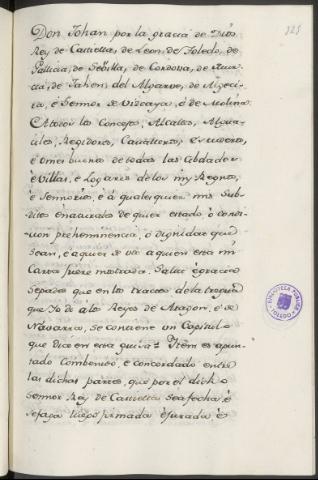 325
Don Johan por la gracia de Dios
Rey de Castiella, de Leon, de Toledo, de
Gallicia, de Sevilla, de Cordova, de Mur-
cia, de Jahen, del Algarve, de Algeci-
ra, é Sennor de Vizcaya, é de Molina.
A todos los Concejos, Alcalles, Algua-
ciles, Regidores, Cavalleros, Escuderos,
é Omes buenos de todas las Cibdades
é Villas, é Logares de los mis Regnos,
é Sennorios, é á qualesquier mis Sub-
ditos é naturales de quier estado ó condi-
cion preheminencia, ó dignidat que
sean, é á quien se va a quien esta mi
Carta fuere mostrada. Salut é gracia
sepades que en los tractos de la tregua
que Yo do á los Reyes de Aragon, é de
Navarra, se contiene un Capitulo
que dice en esta guisa: Item es apun-
tado combenido, é concordado entre
las dichas partes, que por el dicho
Sennor Rey de Castiella sea fecha é
se faga luego firmada é jurada é
BIBLIOTECA PUBLICA
TOLEDO